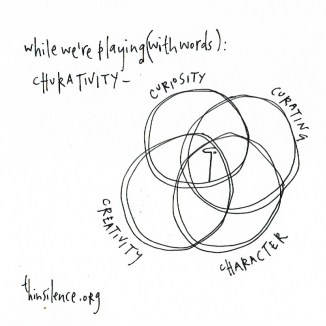 while we're playing (with words):
CHURATIVITY -
CURIOSITY
CURATING
CREATIVITY
CHARACTER
thinsilence.org